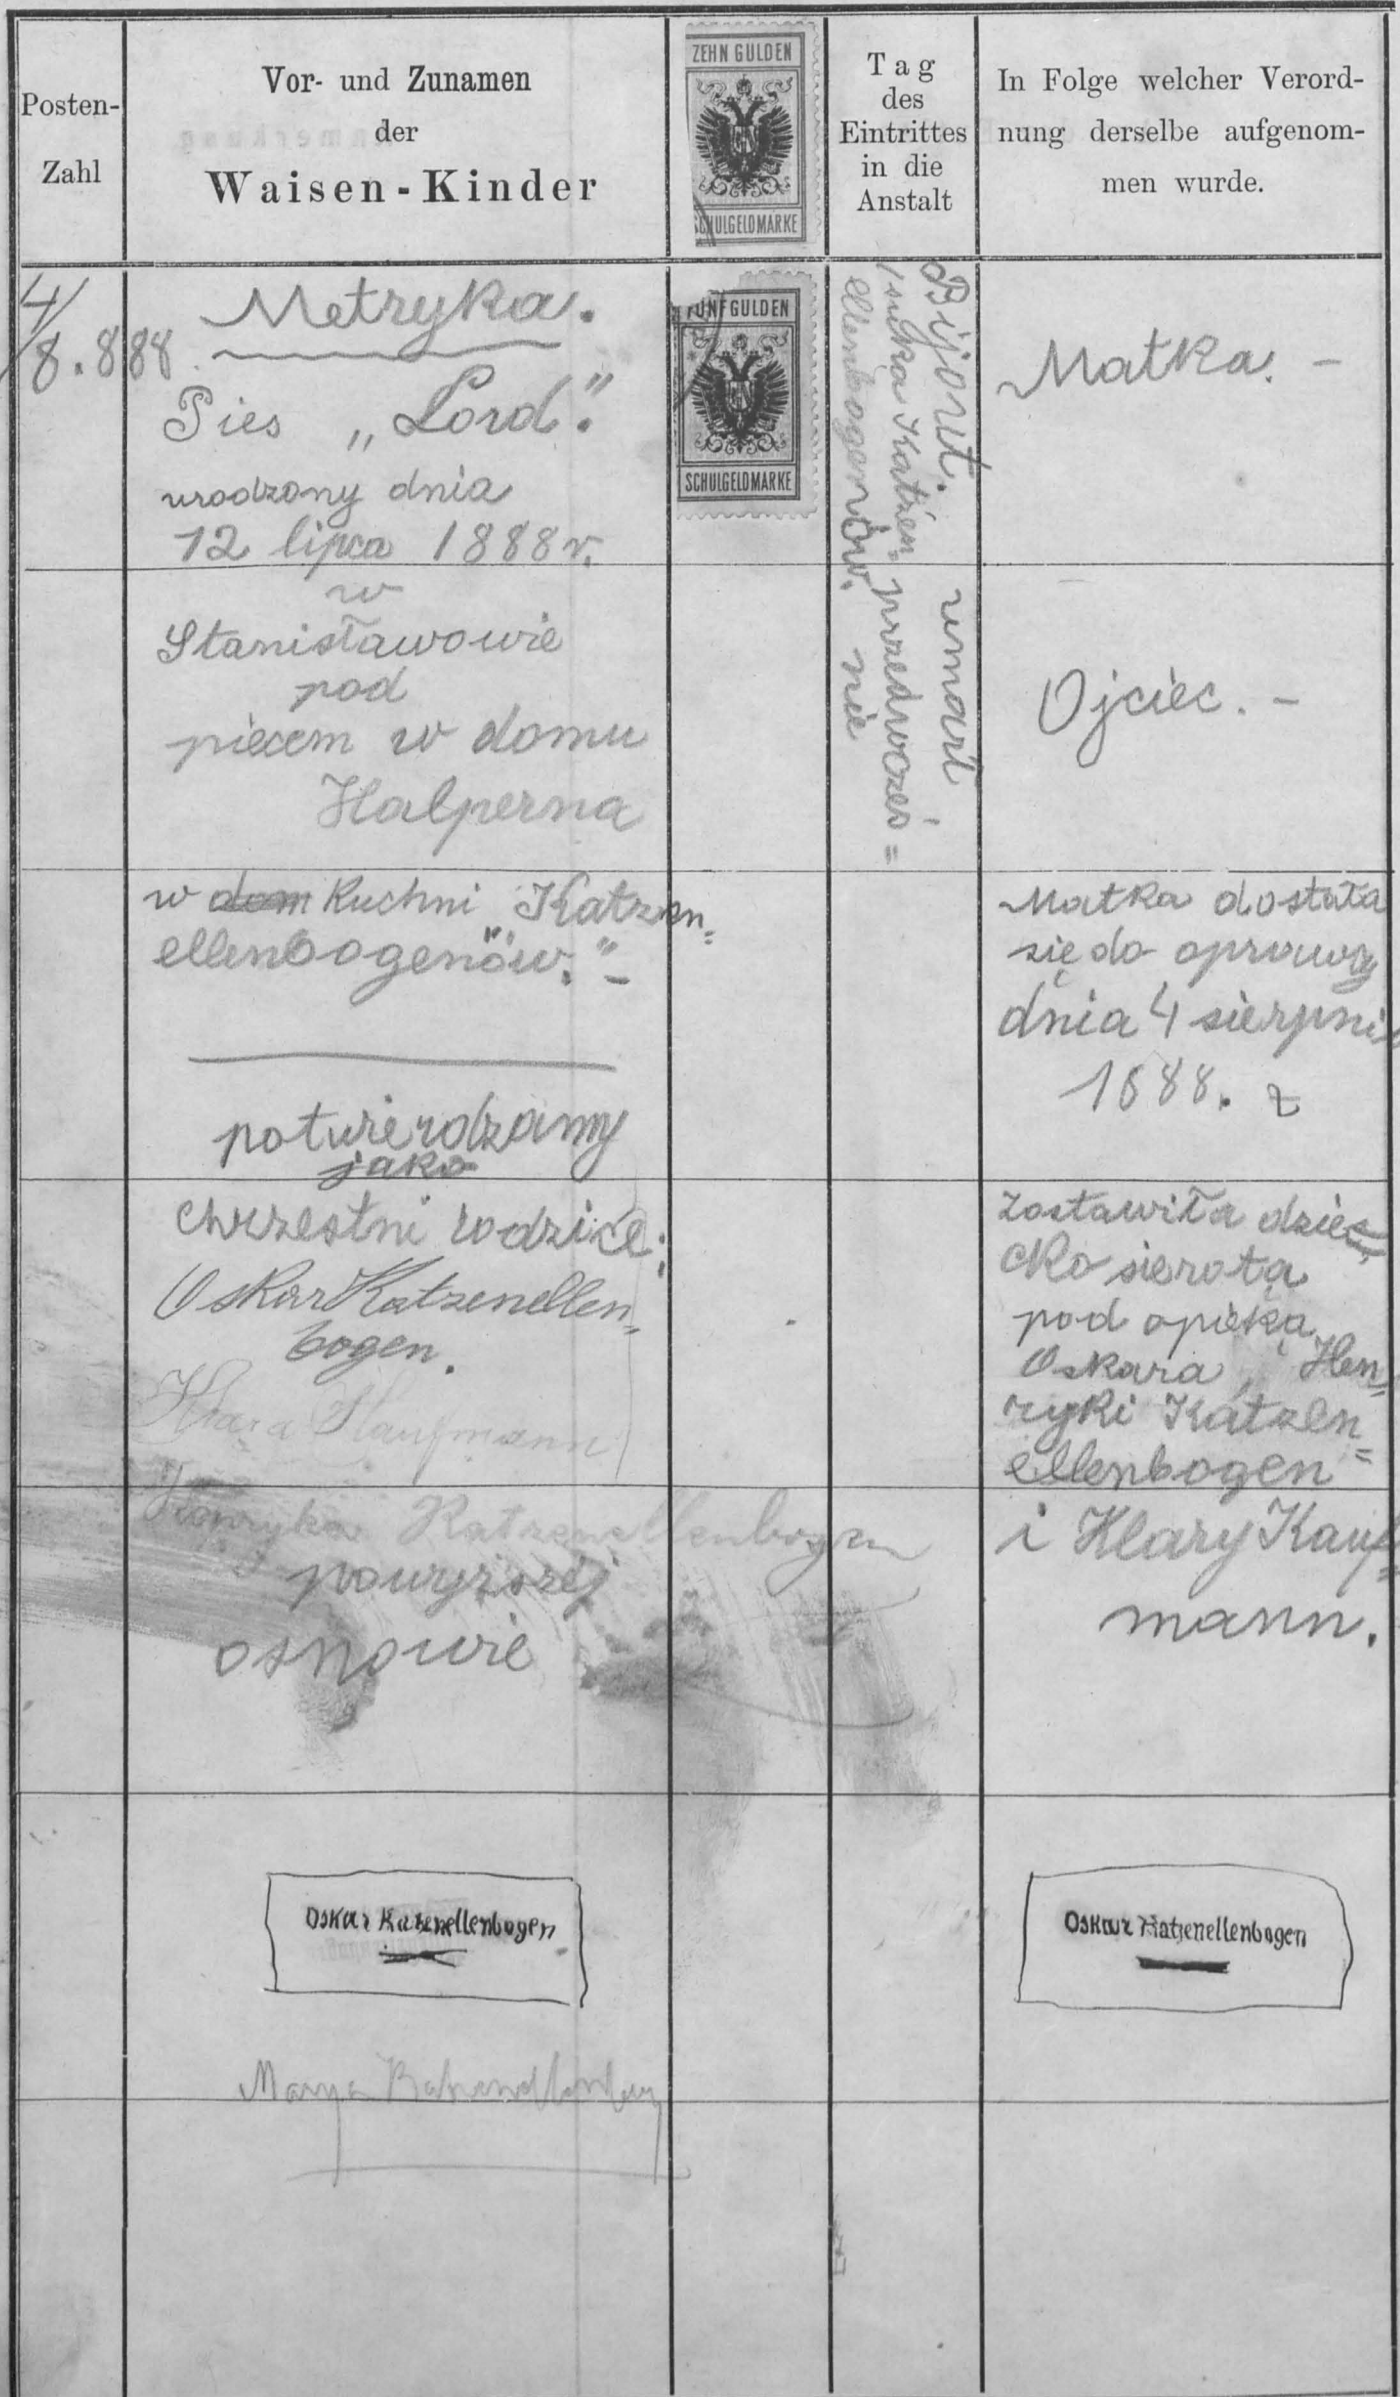 Posten-
Zahl
Vor- und Zunamen
der
Waisen-Kinder
ZEHN GULDEN
SCHULGELDMARKE
Tag
des
Eintrittes
in die
Anstalt
In Folge welcher Verord-
nung derselbe aufgenom-
men wurde.
4/
8.888.
Metryka.
Pies „Lord".
urodzony dnia
12 lipca 1888 r.
w
Stanisławowie
pod
piecem w domu
Halperna
w dom kuchni „Katzen=
ellenbogenów." –
potwierdzamy
jako
chrzestni rodzice:
Oskar Katzenellen=
bogen.
Klara Kaufmann
Henryka Katzenellenbogen
powyższej
osnowie
Oskar Katzenellenbogen
FÜNF GULDEN
SCHULGELDMARKE
Bijout. umarł
suka Katzen= przedwcześ=
ellenbogenów. nie
Matka. –
Ojciec. –
Matka dostała
się do oprawcy
dnia 4 sierpnia
1888. z
zostawiła dzie
cko sierotą
pod opieką
Oskara, Hen=
ryki Katzen=
ellenbogen
i Klary Kauf=
mann.
Oskar Katzenellenbogen